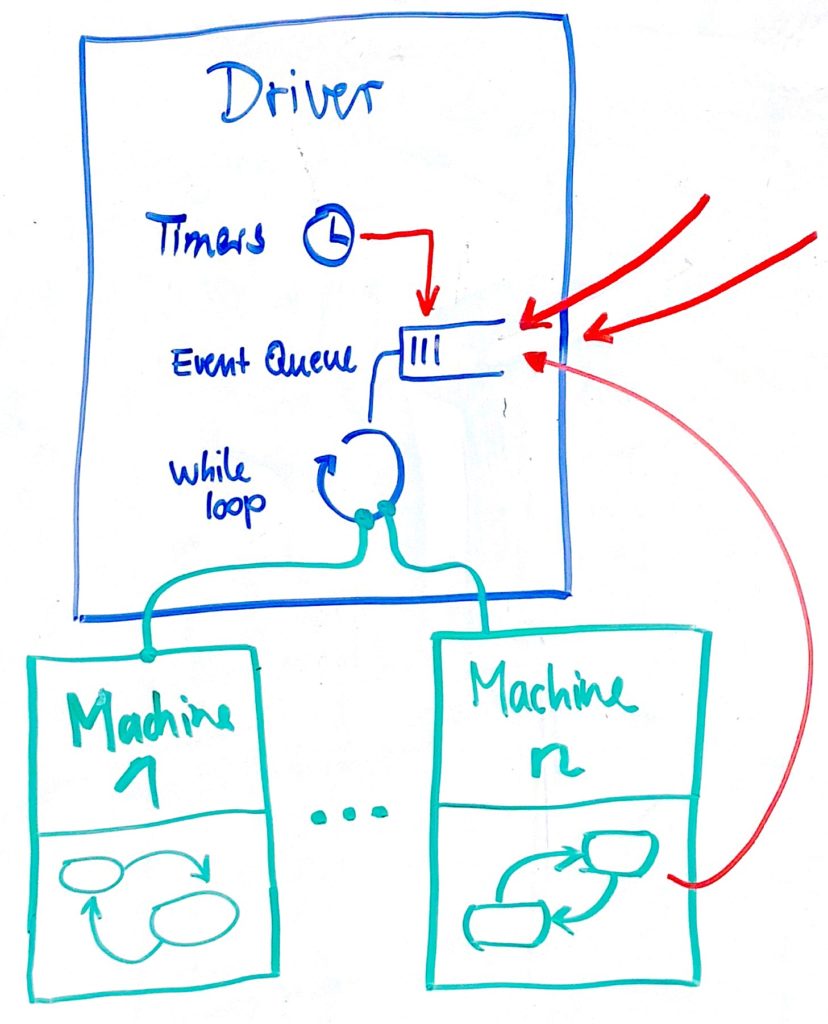 Driver
Timers
Event Queue
while
loop
Machine
1
Machine
n